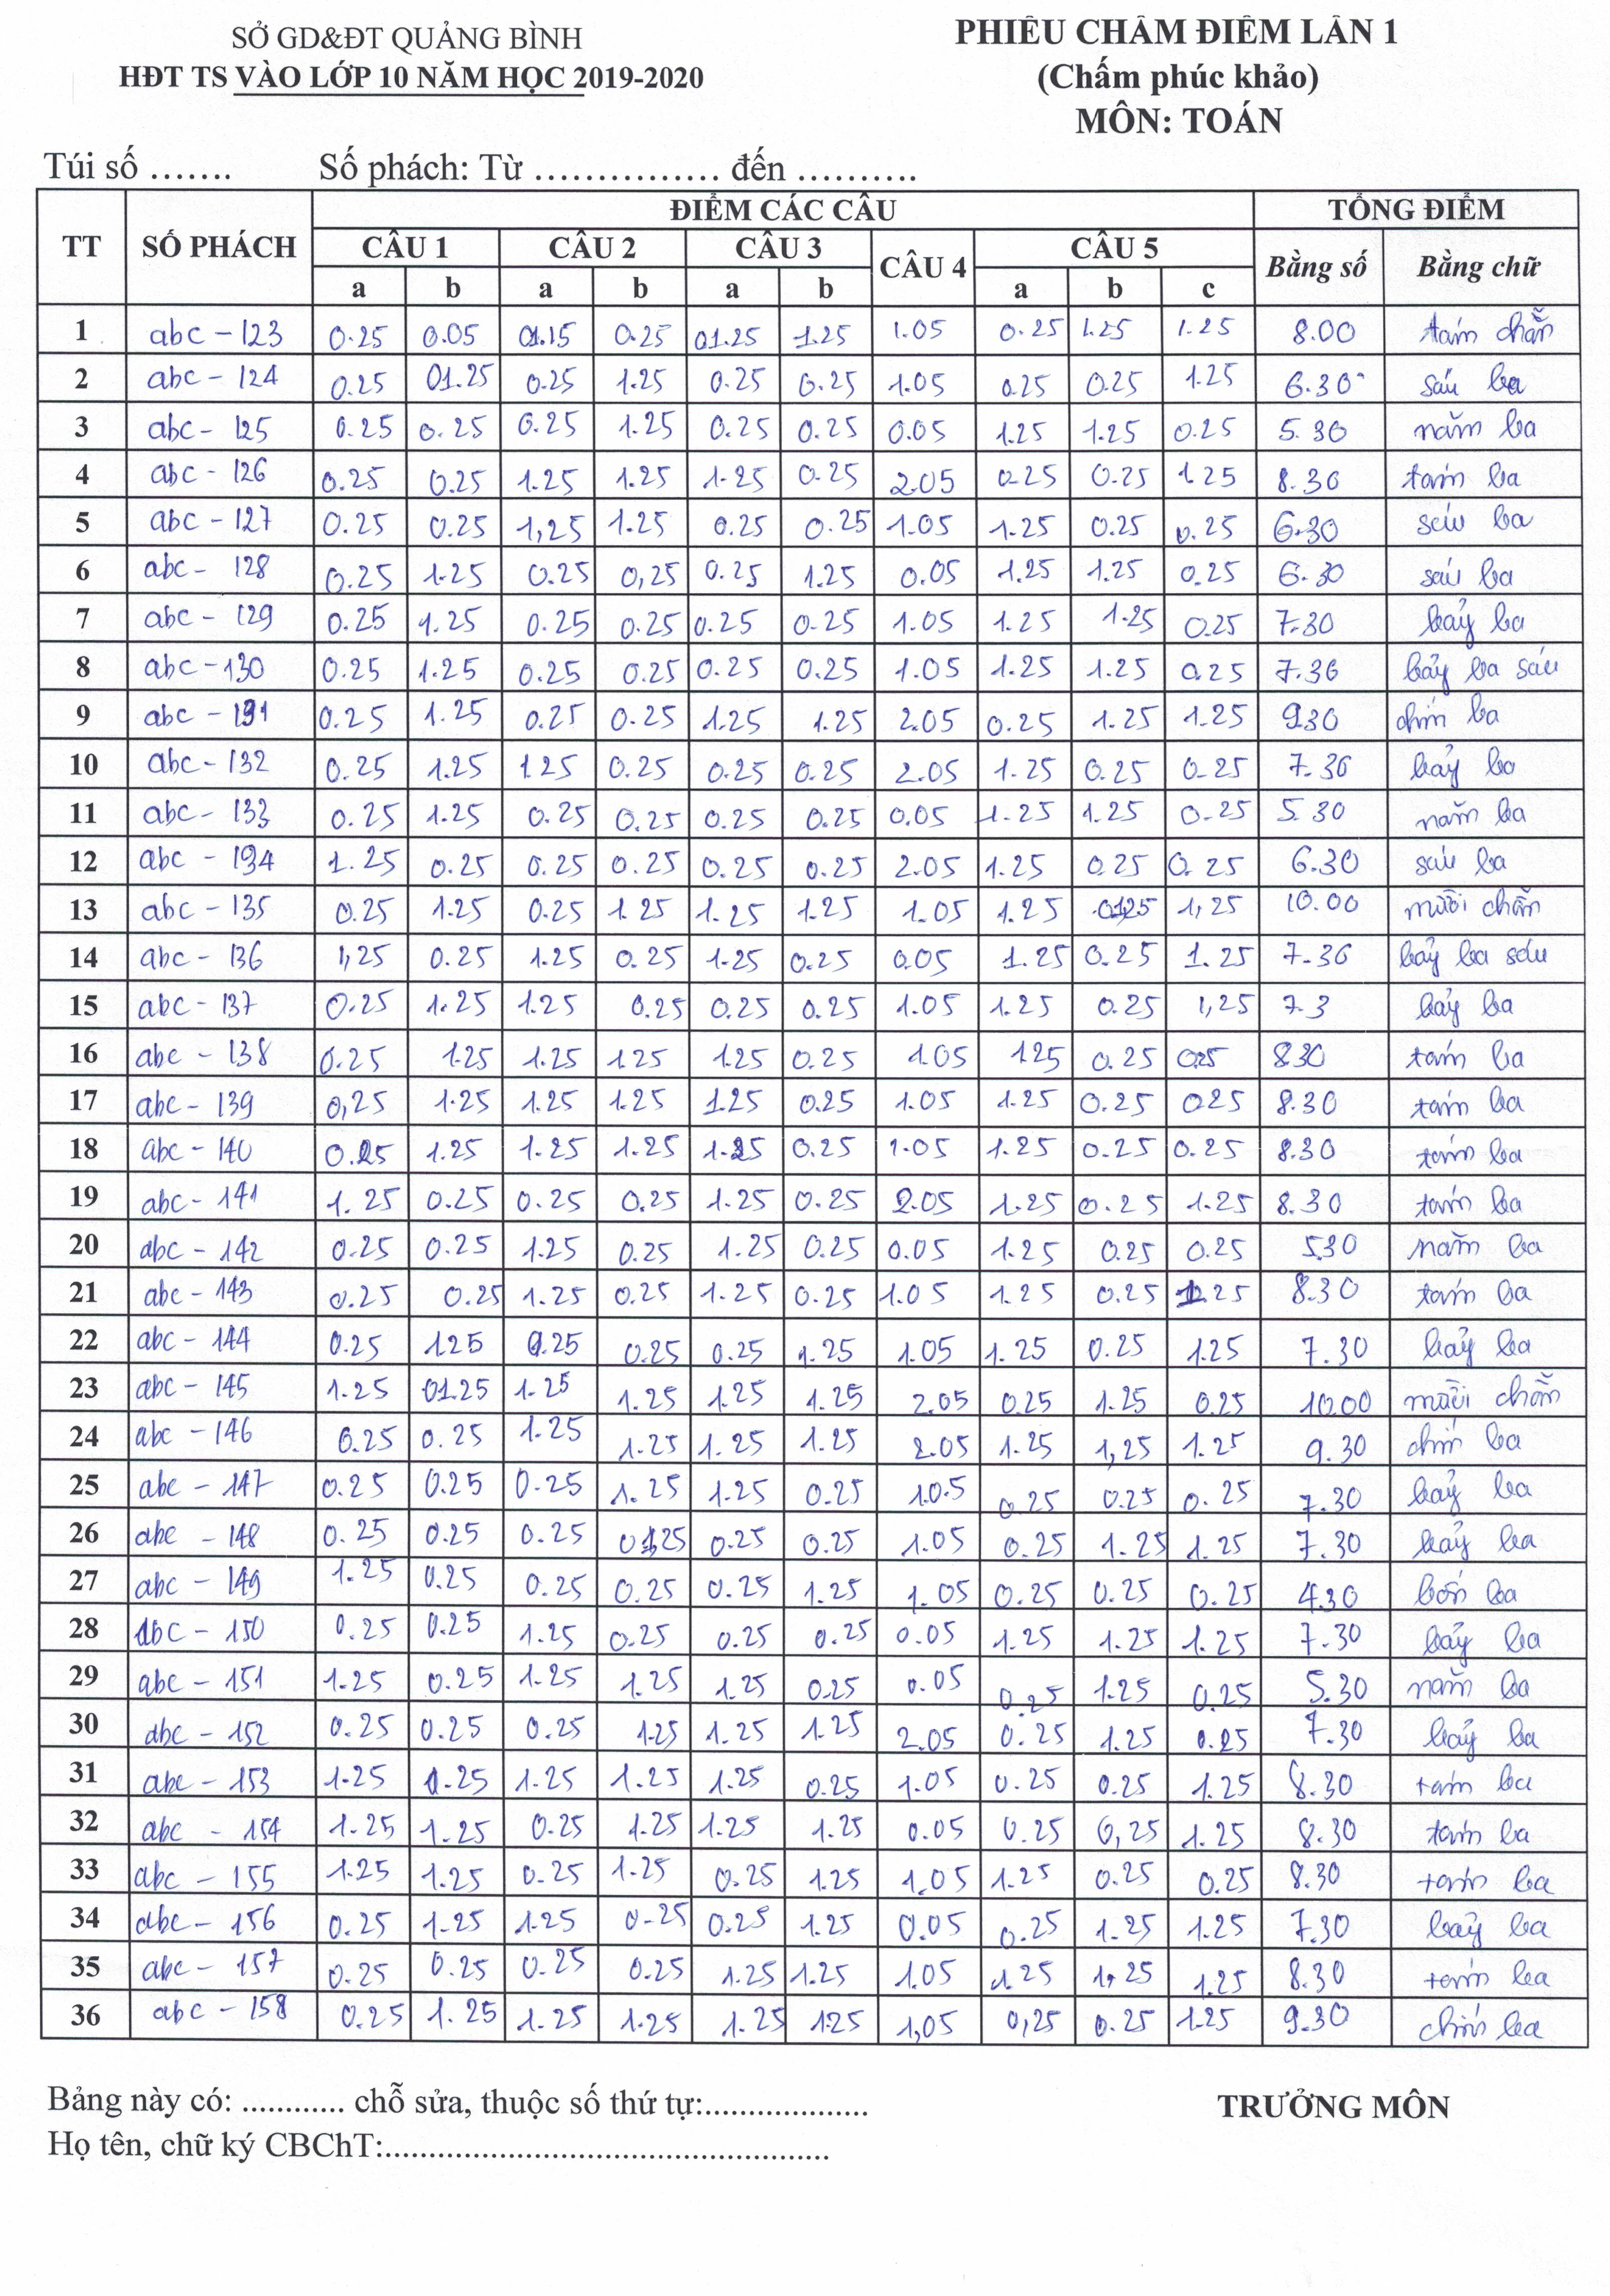 SỞ GD&ĐT QUẢNG BÌNH
HĐT TS VÀO LỚP 10 NĂM HỌC 2019-2020
PHIẾU CHẤM ĐIỂM LẦN 1
(Chấm phúc khảo)
MÔN: TOÁN
Túi số ....... Số phách: Từ ................ đến ..........
TT SỐ PHÁCH ĐIỂM CÁC CÂU TỔNG ĐIỂM
CÂU 1 CÂU 2 CÂU 3 CÂU 4 CÂU 5 Bằng số Bằng chữ
a b a b a b a b c
1 abc - 123 0.25 0.05 01.15 0.25 01.25 1.25 1.05 0.25 1.25 1.25 8.00 tám chẵn
2 abc - 124 0.25 01.25 0.25 1.25 0.25 0.25 1.05 0.25 0.25 1.25 6.30 sáu ba
3 abc - 125 0.25 0.25 0.25 1.25 0.25 0.25 0.05 1.25 1.25 0.25 5.30 năm ba
4 abc - 126 0.25 0.25 1.25 1.25 1.25 0.25 2.05 0.25 0.25 1.25 8.36 tám ba
5 abc - 127 0.25 0.25 1,25 1.25 0.25 0.25 1.05 1.25 0.25 0.25 6.30 sáu ba
6 abc - 128 0.25 1.25 0.25 0,25 0.25 1.25 0.05 1.25 1.25 0.25 6.30 sáu ba
7 abc - 129 0.25 1.25 0.25 0.25 0.25 0.25 1.05 1.25 1.25 0.25 7.30 bảy ba
8 abc - 130 0.25 1.25 0.25 0.25 0.25 0.25 1.05 1.25 1.25 0.25 7.36 bảy ba sáu
9 abc - 131 0.25 1.25 0.25 0.25 1.25 1.25 2.05 0.25 1.25 1.25 9.30 chín ba
10 abc - 132 0.25 1.25 1.25 0.25 0.25 0.25 2.05 1.25 0.25 0.25 7.36 bảy ba
11 abc - 133 0.25 1.25 0.25 0.25 0.25 0.25 0.05 1.25 1.25 0.25 5.30 năm ba
12 abc - 134 1.25 0.25 0.25 0.25 0.25 0.25 2.05 1.25 0.25 0.25 6.30 sáu ba
13 abc - 135 0.25 1.25 0.25 1.25 1.25 1.25 1.05 1.25 1,25 10.00 mười chẵn
14 abc - 136 1,25 0.25 1.25 0.25 1.25 0.25 0.05 1.25 0.25 1.25 7.36 bảy ba sáu
15 abc - 137 0.25 1.25 1.25 0.25 0.25 0.25 1.05 1.25 0.25 1,25 7.3 bảy ba
16 abc - 138 0.25 1.25 1.25 1.25 1.25 0.25 1.05 1.25 0.25 0.25 8.30 tám ba
17 abc - 139 0,25 1.25 1.25 1.25 1.25 0.25 1.05 1.25 0.25 0.25 8.30 tám ba
18 abc - 140 0.25 1.25 1.25 1.25 1.25 0.25 1.05 1.25 0.25 0.25 8.30 tám ba
19 abc - 141 1.25 0.25 0.25 0.25 1.25 0.25 2.05 1.25 0.25 1.25 8.30 tám ba
20 abc - 142 0.25 0.25 1.25 0.25 1.25 0.25 0.05 1.25 0.25 0.25 5.30 năm ba
21 abc - 143 0.25 0.25 1.25 0.25 1.25 0.25 1.05 1.25 0.25 1.25 8.30 tám ba
22 abc - 144 0.25 1.25 0.25 0.25 0.25 1.25 1.05 1.25 0.25 1.25 7.30 bảy ba
23 abc - 145 1.25 01.25 1.25 1.25 1.25 1.25 2.05 0.25 1.25 0.25 10.00 mười chẵn
24 abc - 146 0.25 0.25 1.25 1.25 1.25 1.25 2.05 1.25 1,25 1.25 9.30 chín ba
25 abc - 147 0.25 0.25 0.25 1.25 1.25 0.25 1.0.5 0.25 0.25 0.25 7.30 bảy ba
26 abc - 148 0.25 0.25 0.25 0.25 0.25 1.05 0.25 1.25 1.25 7.30 bảy ba
27 abc - 149 1.25 0.25 0.25 0.25 0.25 1.25 1.05 0.25 0.25 0.25 4.30 bốn ba
28 abc - 150 0.25 0.25 1.25 0.25 0.25 0.25 0.05 1.25 1.25 1.25 7.30 bảy ba
29 abc - 151 1.25 0.25 1.25 1.25 1.25 0.25 0.05 0.25 1.25 0.25 5.30 năm ba
30 abc - 152 0.25 0.25 0.25 1.25 1.25 1.25 2.05 0.25 1.25 0.25 7.30 bảy ba
31 abc - 153 1.25 0.25 1.25 1.25 1.25 0.25 1.05 0.25 0.25 1.25 8.30 tám ba
32 abc - 154 1.25 1.25 0.25 1.25 1.25 1.25 0.05 0.25 0,25 1.25 8.30 tám ba
33 abc - 155 1.25 1.25 0.25 1.25 0.25 1.25 1.05 1.25 0.25 0.25 8.30 tám ba
34 abc - 156 0.25 1.25 1.25 0.25 0.25 1.25 0.05 0.25 1.25 1.25 7.30 bảy ba
35 abc - 157 0.25 0.25 0.25 0.25 1.25 1.25 1.05 1.25 1,25 1.25 8.30 tám ba
36 abc - 158 0.25 1.25 1.25 1.25 1.25 1.25 1,05 0,25 0.25 1.25 9.30 chín ba
Bảng này có: ............ chỗ sửa, thuộc số thứ tự:...................
TRƯỞNG MÔN
Họ tên, chữ ký CBChT:....................................................